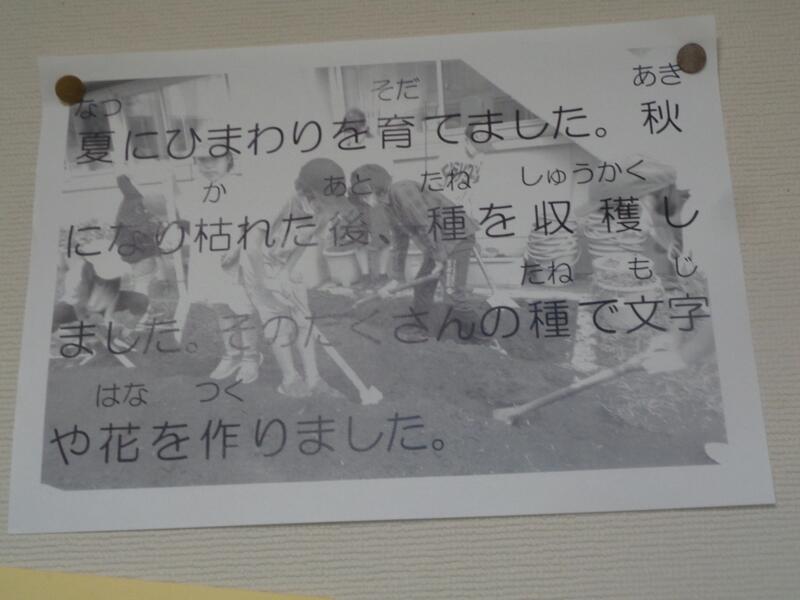 なつ そだ あき
夏にひまわりを育てました。秋
か あと たね しゅうかく
になり枯れた後、種を収穫し
たね もじ
ました。そのたくさんの種で文字
はな つく
や花を作りました。